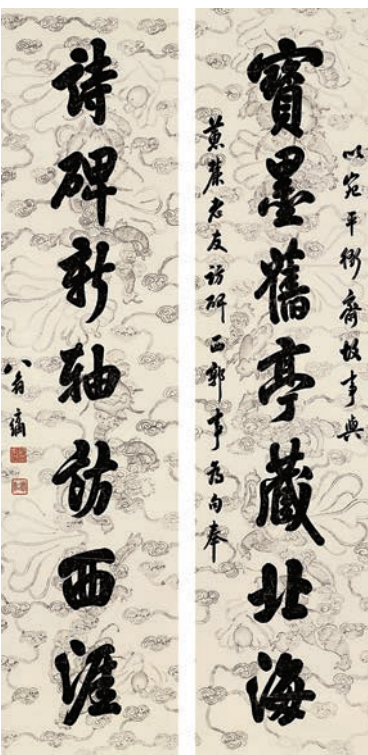 寶墨舊亭藏北海
以宛平衙齋故事與
老友訪碑西郭事為句奉
詩碑新軸訪西涯
翁方綱